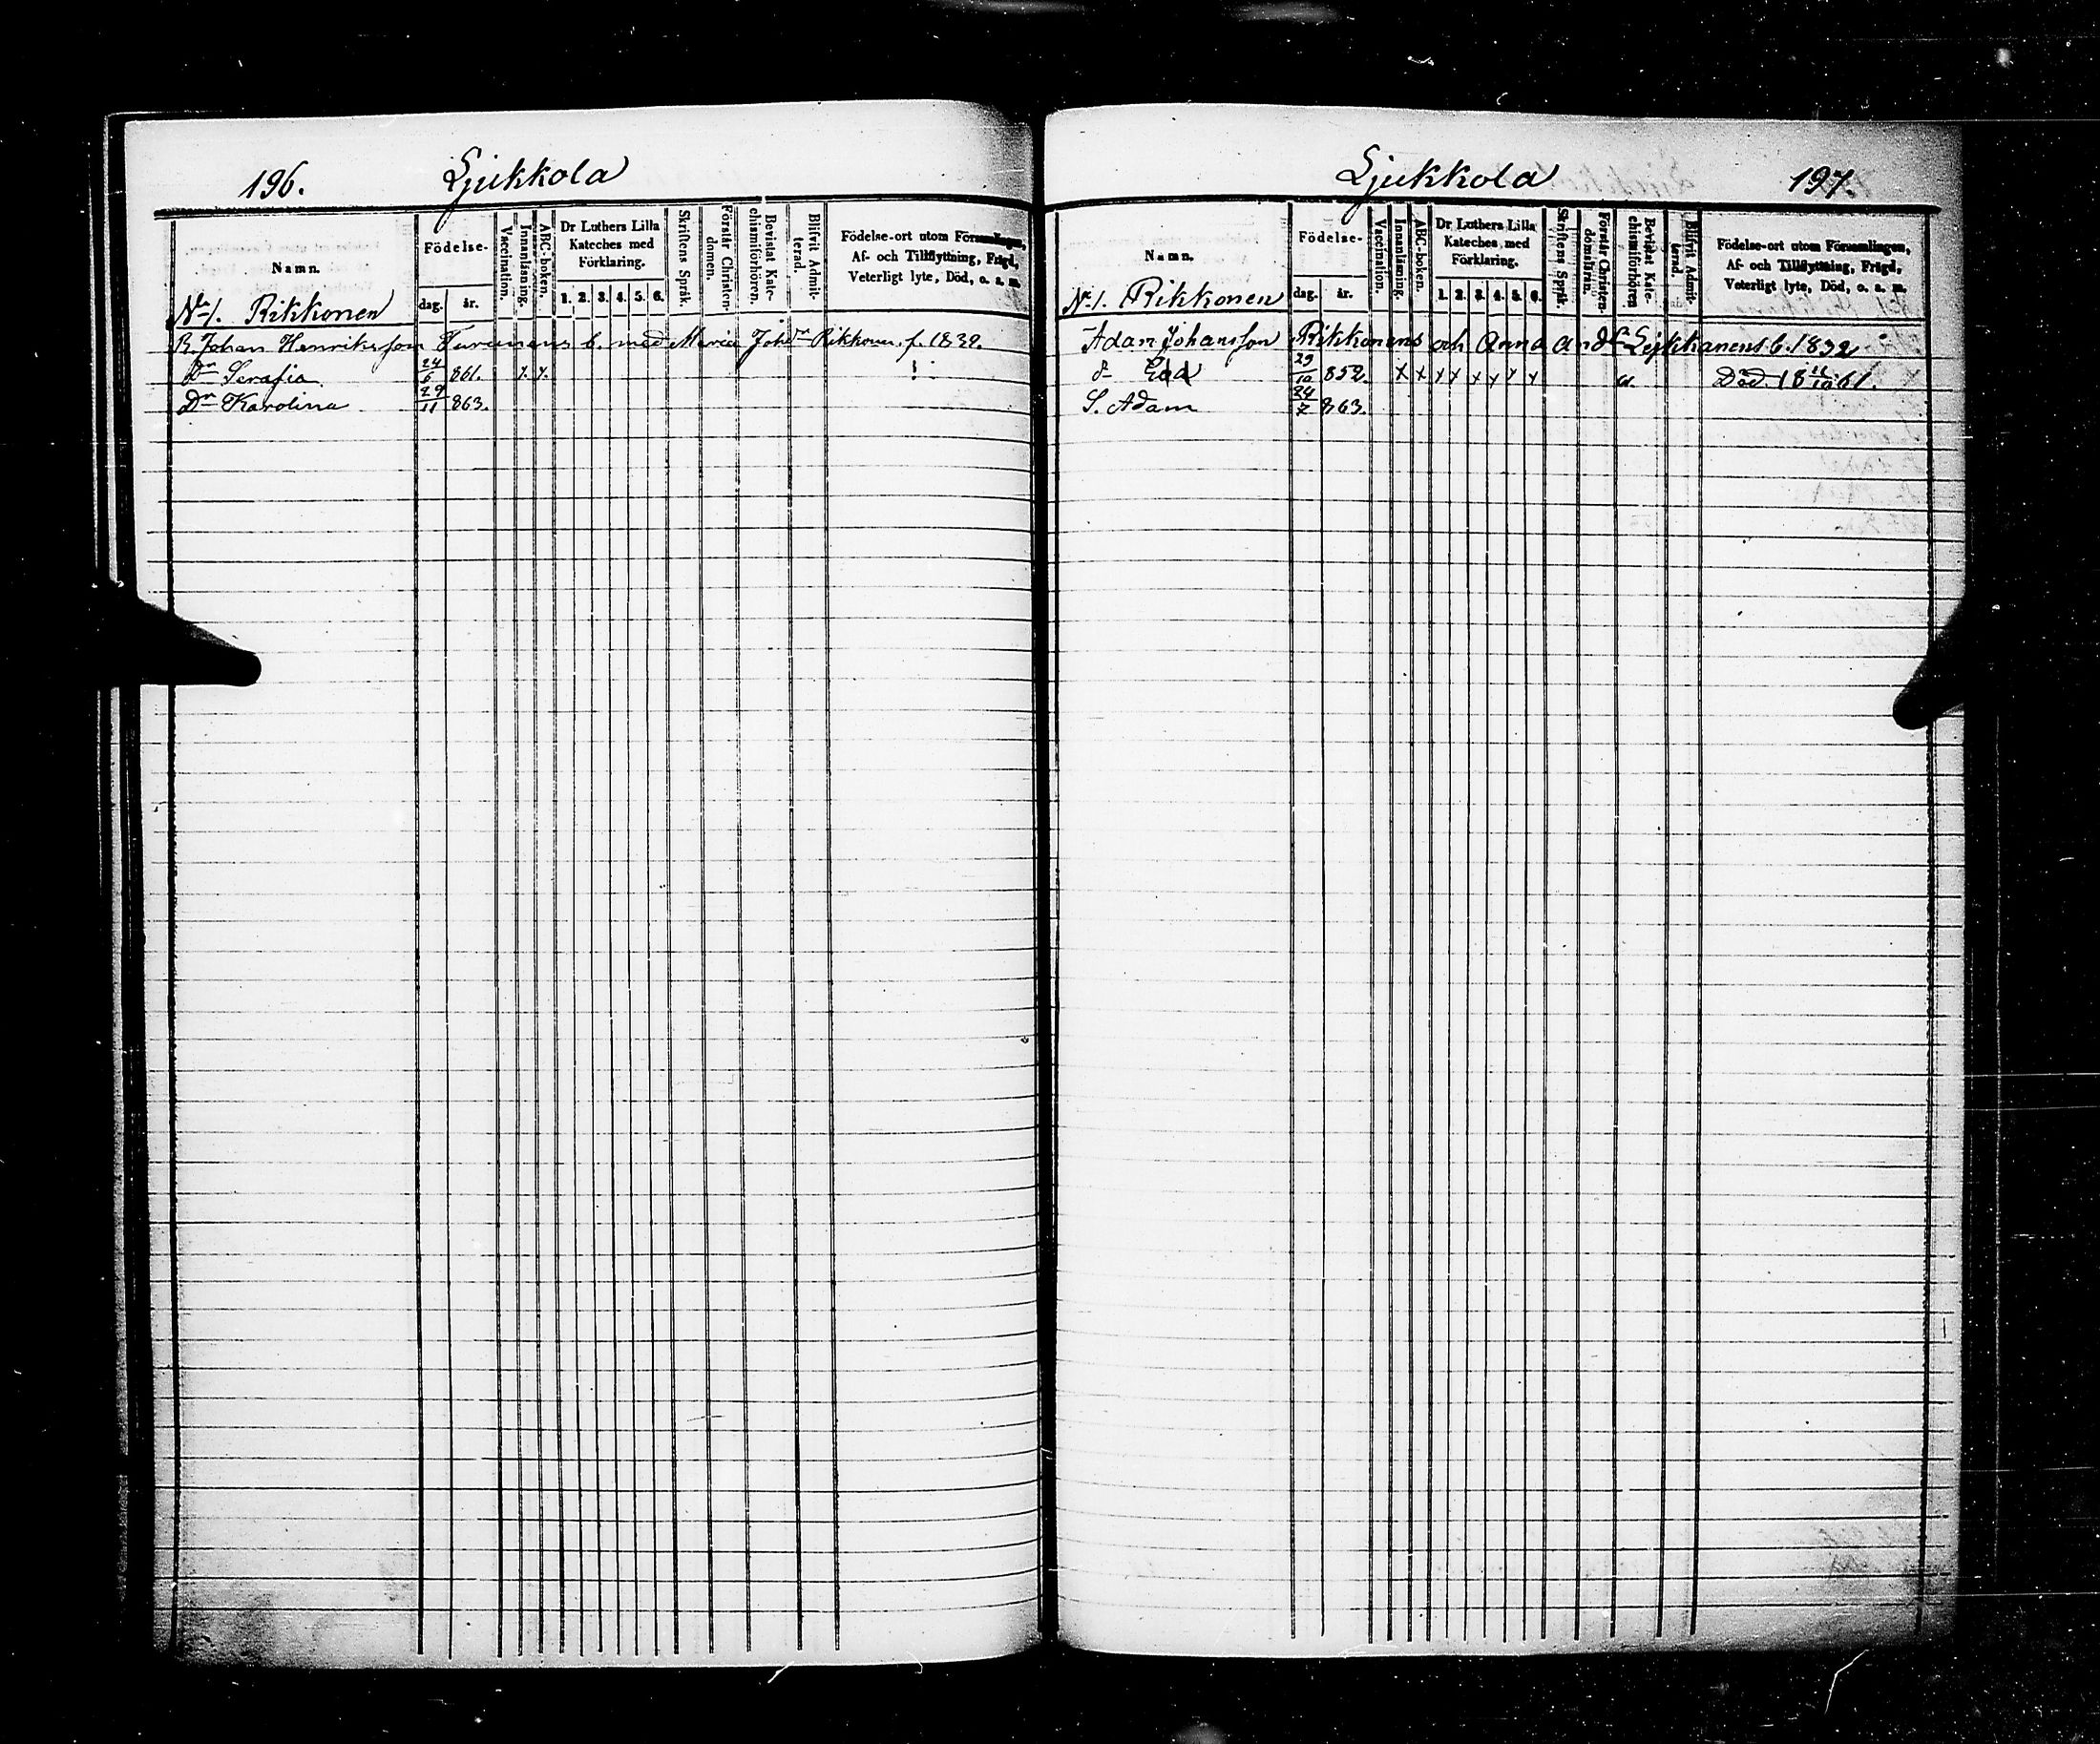 196. Ljukkola
Namn.
Födelse-
dag. år.
Vaccination.
Innanläsning.
ABC-boken.
Dr Luthers Lilla
Kateches med
Förklaring.
1. 2. 3. 4. 5. 6.
Skriftens Språk.
Förstår Christen-
domen.
Bevistat Kate-
chismiförhören.
Blifvit Admit-
terad.
Födelse-ort utom Församlingen,
Af- och Tillflyttning, Frägd,
Veterligt lyte, Död, o. s. m.
No 1. Rikkonen
B. Johan Henriksson Turunens b. med Maria Johdr Rikkonen f. 1832.
Dr Serafia 24/6 861. x. x.
Dr Karolina 29/11 863.
Ljukkola 197.
Namn.
Födelse-
dag. år.
Vaccination.
Innanläsning.
ABC-boken.
Dr Luthers Lilla
Kateches med
Förklaring.
1. 2. 3. 4. 5. 6.
Skriftens Språk.
Förstår Christen-
domsläran.
Bevistat Kate-
chismiförhören
Blifvit Admit-
terad.
Födelse-ort utom Församlingen,
Af- och Tillflyttning, Frägd,
Veterligt lyte, Död, o. s. m.
No 1. Rikkonen
Adam Johansson Rikkonens och Anna Andr b. 1832
d- Eda 29/10 852. x x x x x x x x Död. 18 11/10 61.
S. Adam 24/7 863.